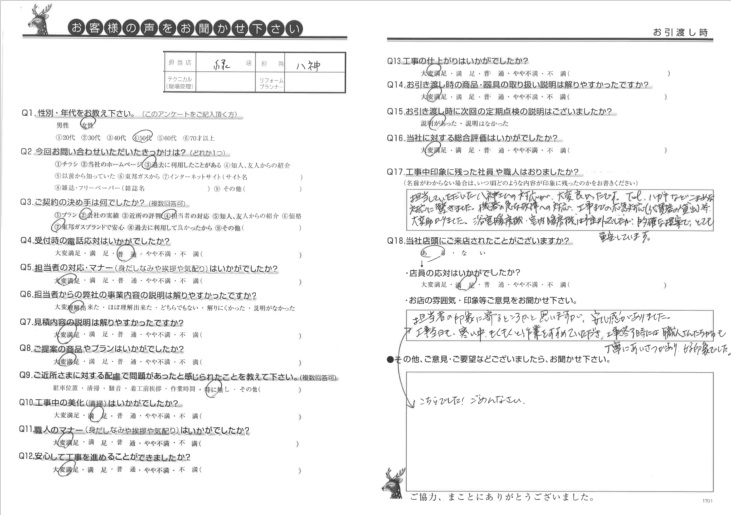 お客様の声をお聞かせ下さい
担当店 緑 店 担当 八神
テクニカル(現場管理) リフォームプランナー
Q1.性別・年代をお教え下さい。(このアンケートをご記入頂く方)
男性 女性
①20代 ②30代 ③40代 ④50代 ⑤60代 ⑥70才以上
Q2.今回お問い合わせいただいたきっかけは?(どれか1つ)
①チラシ ②当社のホームページ ③過去に利用したことがある ④知人、友人からの紹介
⑤以前から知っていた ⑥東邦ガスから ⑦インターネットサイト(サイト名 )
⑧雑誌・フリーペーパー(雑誌名 ) ⑨その他( )
Q3.ご契約の決め手は何でしたか?(複数回答可)
①プラン ②会社の実績 ③近所の評判 ④担当者の対応 ⑤知人、友人からの紹介 ⑥価格
⑦東邦ガスブランドで安心 ⑧過去に利用して良かったから ⑨その他( )
Q4.受付時の電話応対はいかがでしたか?
大変満足・満 足・普 通・やや不満・不 満( )
Q5.担当者の対応・マナー(身だしなみや挨拶や気配り)はいかがでしたか?
大変満足・満 足・普 通・やや不満・不 満( )
Q6.担当者からの弊社の事業内容の説明は解りやすかったですか?
大変理解出来た・ほぼ理解出来た・どちらでもない・解りにくかった・説明がなかった
Q7.見積内容の説明は解りやすかったですか?
大変満足・満 足・普 通・やや不満・不 満( )
Q8.ご提案の商品やプランはいかがでしたか?
大変満足・満 足・普 通・やや不満・不 満( )
Q9.ご近所さまに対する配慮で問題があったと感じられたことを教えて下さい。(複数回答可)
駐車位置・清掃・騒音・着工前挨拶・作業時間・特に無し・その他( )
Q10.工事中の美化(清掃)はいかがでしたか?
大変満足・満 足・普 通・やや不満・不 満( )
Q11.職人のマナー(身だしなみや挨拶や気配り)はいかがでしたか?
大変満足・満 足・普 通・やや不満・不 満( )
Q12.安心して工事を進めることができましたか?
大変満足・満 足・普 通・やや不満・不 満( )
お引渡し時
Q13.工事の仕上がりはいかがでしたか?
大変満足・満 足・普 通・やや不満・不 満( )
Q14.お引き渡し時の商品・器具の取り扱い説明は解りやすかったですか?
大変満足・満 足・普 通・やや不満・不 満( )
Q15.お引き渡し時に次回の定期点検の説明はございましたか?
説明があった・説明はなかった
Q16.当社に対する総合評価はいかがでしたか?
大変満足・満 足・普 通・やや不満・不 満( )
Q17.工事中印象に残った社員や職人はおりましたか?
(名前がわからない場合は、いつ頃どのような内容が印象に残ったのかをお書きください)
担当していただいた八神さんの対応が、大変良かったです。
満足しています。
Q18.当社店頭にご来店されたことがございますか?
ある・ない
・店員の応対はいかがでしたか?
大変満足・満 足・普 通・やや不満・不 満( )
・お店の雰囲気・印象等ご意見をお聞かせ下さい。
担当者の印象に寄るところかと思いますが、安心感がありました。
工事当日も、寒い中もくもくと作業をすすめていただき、工事終了時には職人さんたちからも
丁寧にあいさつがあり 好印象でした。
●その他、ご意見・ご要望などございましたら、お聞かせ下さい。
こちらでした! ごめんなさい。
ご協力、まことにありがとうございました。
1701